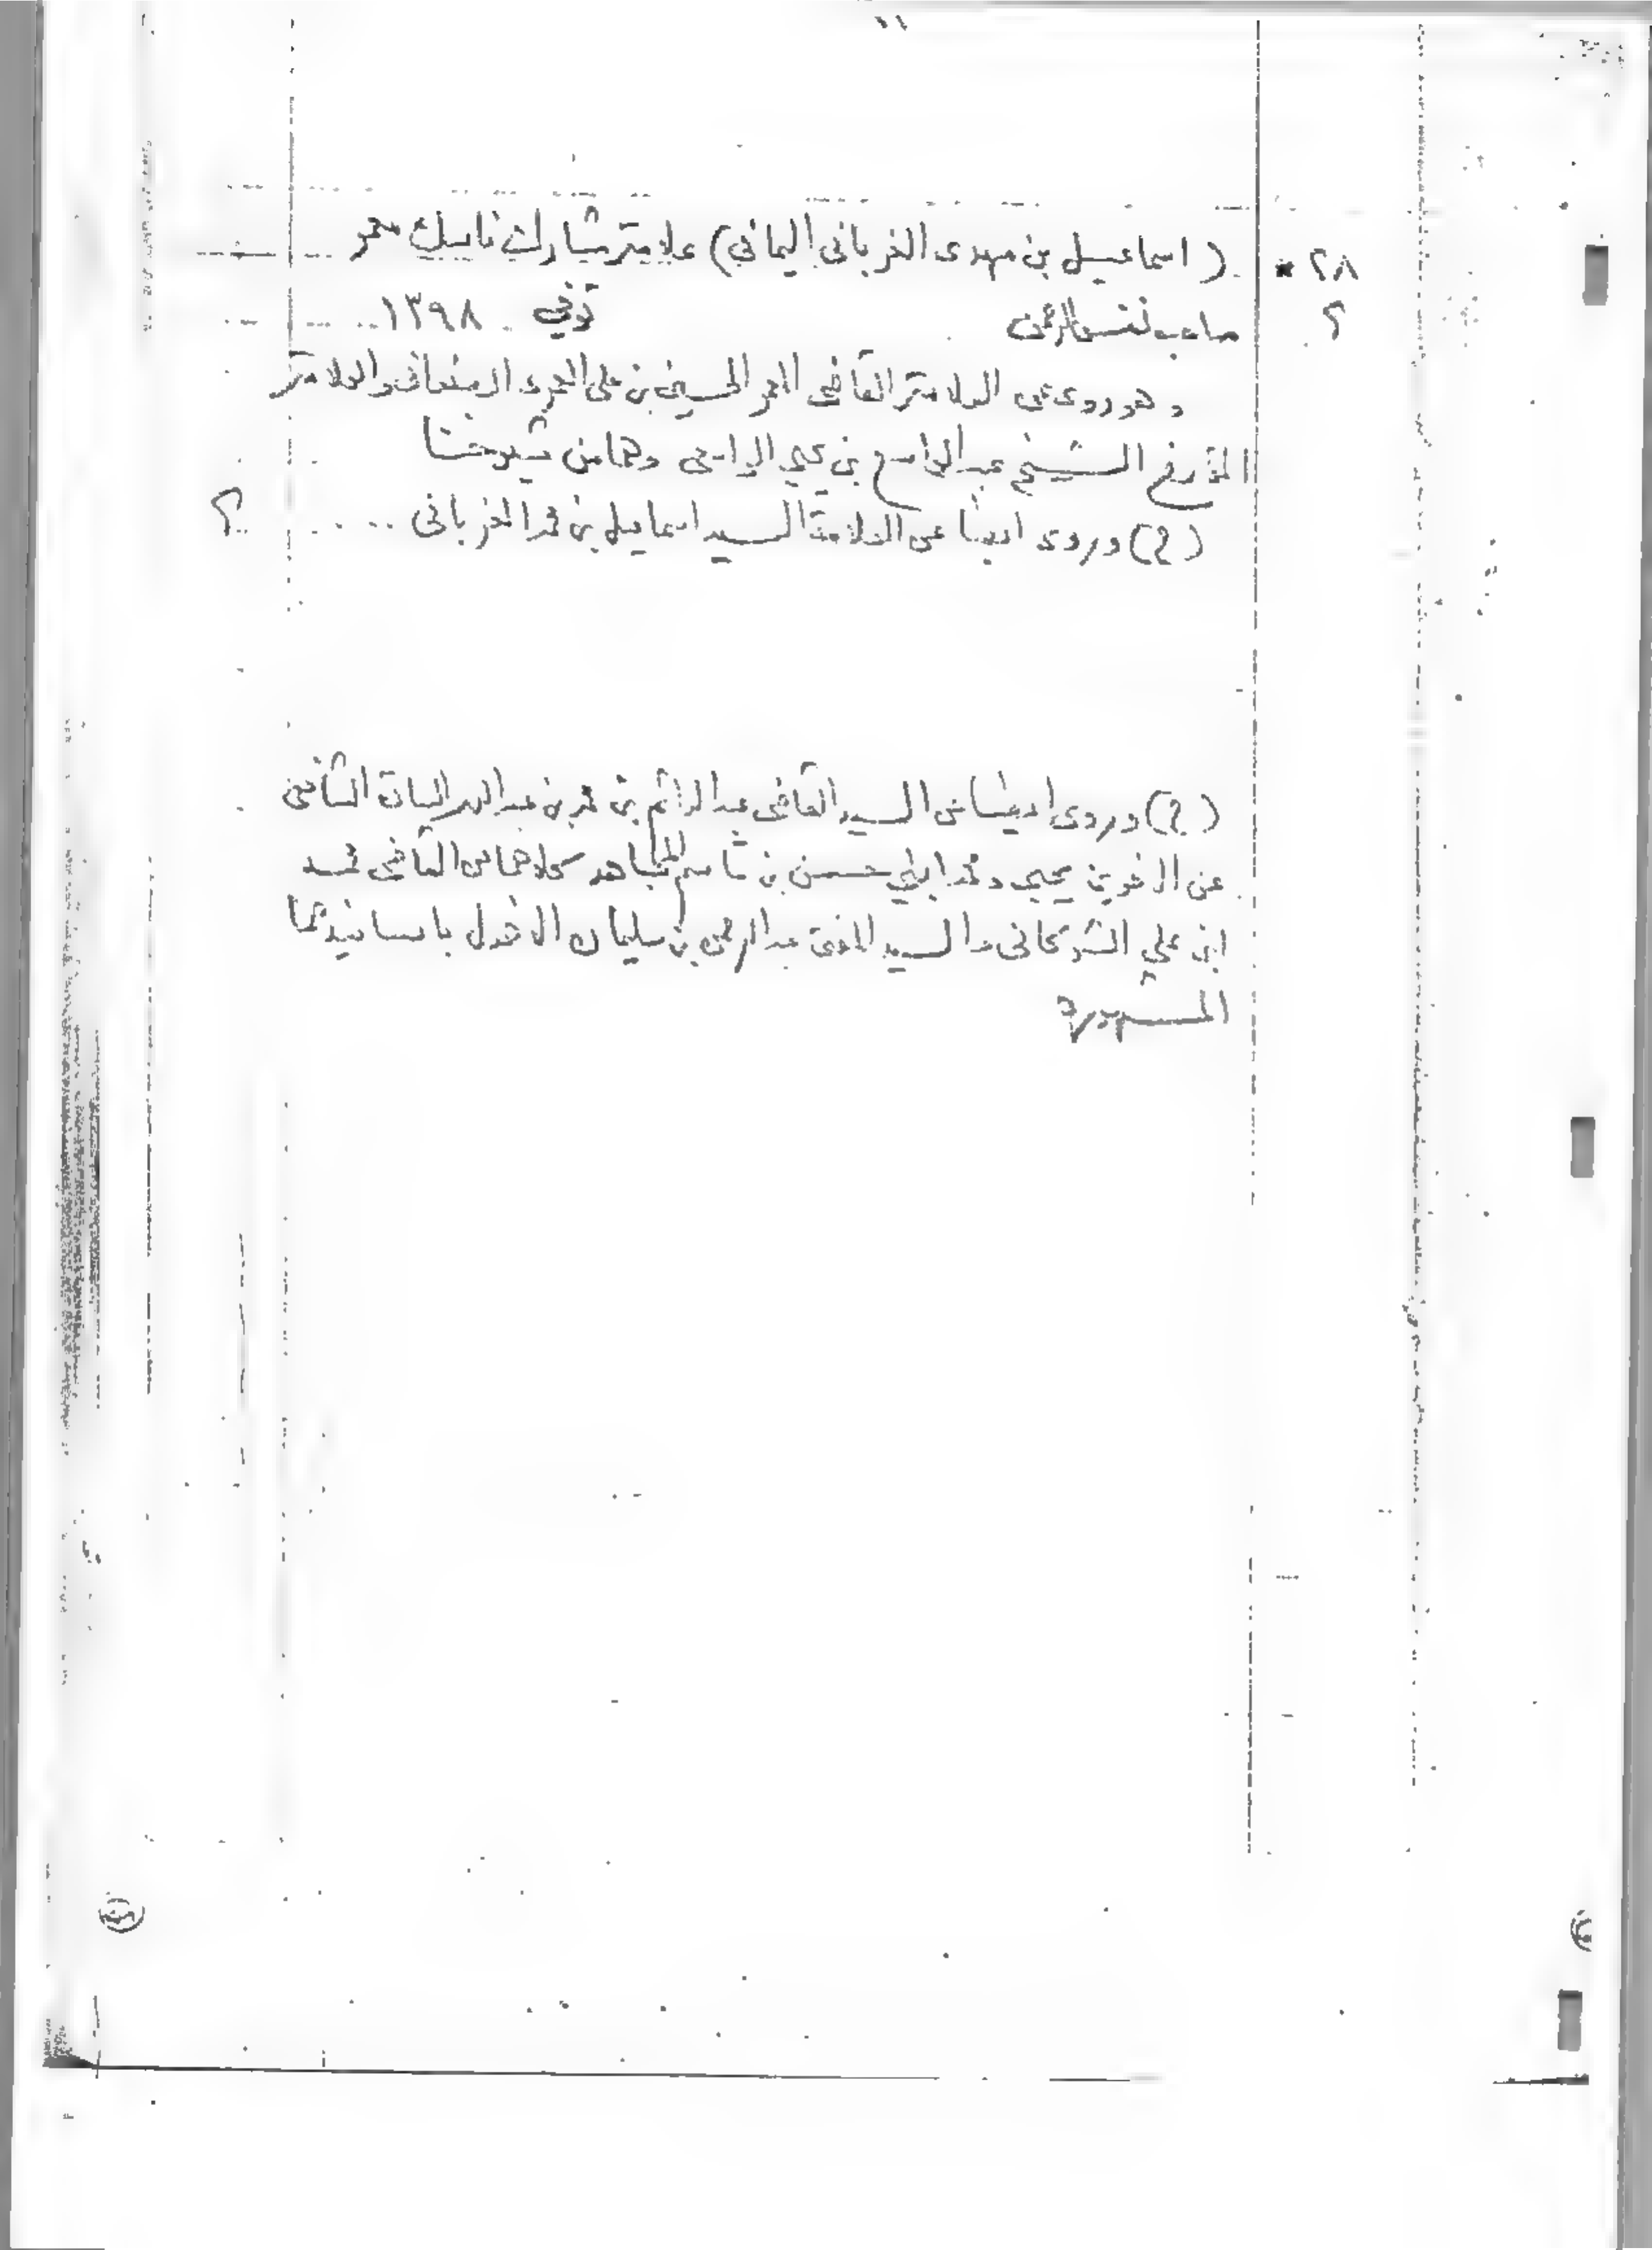 ٢٨ * (اسماعيل بن مهدى الغربانى اليماني) علامة مشارك ناسك معمر
؟ صاحب نفس الرحمن توفي ١٣٩٨
وهو روى عن العلامة القاضى المعمر الحسين بن على العمرى الصنعانى والعلامة
المؤرخ الشيخ عبدالواسع بن يحي الواسعى وهما من شيوخنا
(؟) وروى ايضا عن العلامة السيد اسماعيل بن محمد الغربانى .... ؟
(؟) وروى ايضا عن السيد القاضى عبدالدائم بن محمد بن عبدالله الشافعى
عن الاخوين يحيى ومحمد ابني حسن بن قاسم المجاهد كلاهما عن القاضى محمد
ابن علي الشوكانى والسيد المفتى عبدالرحمن بن سليمان الاهدل باسانيدهما
المشهورة